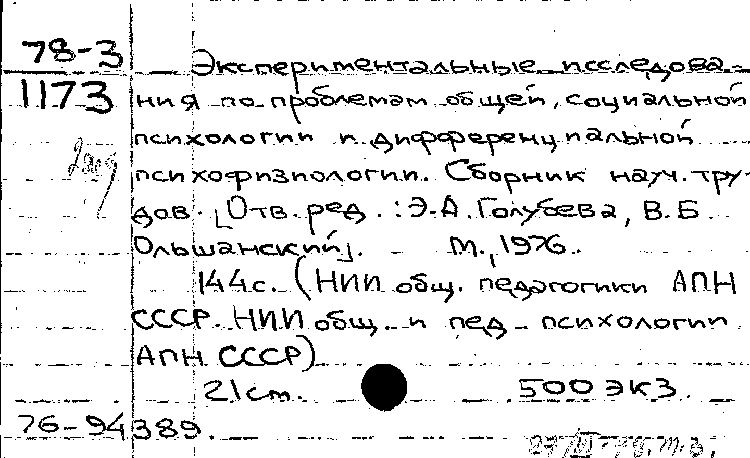 78-3
1173
Экспериментальные исследова-
ния по проблемам общей, социальной
психологии и дифференциальной
психофизиологии. Сборник науч. тру-
дов. [Отв. ред.: Э.А. Голубева, В.Б
Ольшанский]. М., 1976.
144с. (НИИ общ. педагогики АПН
СССР. НИИ общ. и пед. психологии
АПН СССР)
21 см. 500 экз.
76-94389.